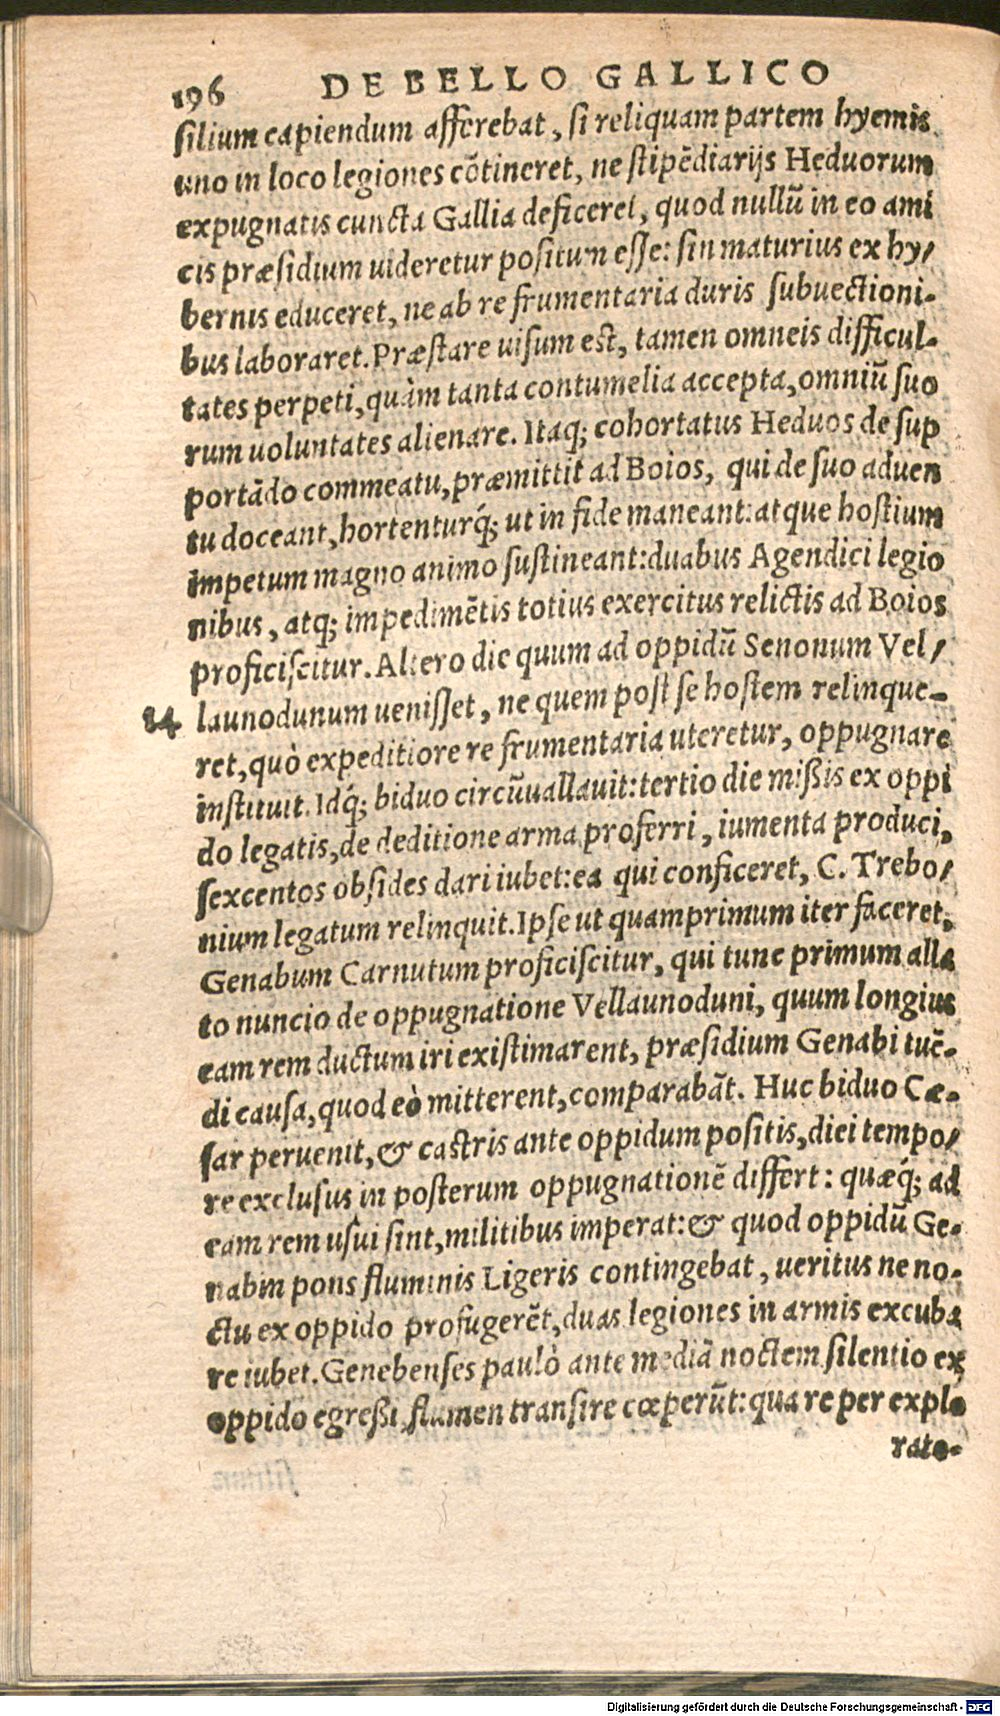 196 DE BELLO GALLICO
silium capiendum afferebat, si reliquam partem hyemis
uno in loco legiones cōtineret, ne stipēdiarijs Heduorum
expugnatis cuncta Gallia deficeret, quod nullū in eo ami
cis præsidium uideretur positum esse: sin maturius ex hy/
bernis educeret, ne ab re frumentaria duris subuectioni-
bus laboraret. Præstare uisum est, tamen omneis difficul-
tates perpeti, quàm tanta contumelia accepta, omniū suo
rum uoluntates alienare. Itaq; cohortatus Heduos de sup
portādo commeatu, præmittit ad Boios, qui de suo aduen
tu doceant, hortenturq́; ut in fide maneant: atque hostium
impetum magno animo sustineant: duabus Agendici legio
nibus, atq; impedimētis totius exercitus relictis ad Boios
proficiscitur. Altero die quum ad oppidū Senonum Vel/
14 launodunum uenisset, ne quem post se hostem relinque-
ret, quò expeditiore re frumentaria uteretur, oppugnare
instituit. Idq́; biduo circūuallauit: tertio die mißis ex oppi
do legatis, de deditione arma proferri, iumenta produci,
sexcentos obsides dari iubet: ea qui conficeret, C. Trebo/
nium legatum relinquit. Ipse ut quamprimum iter faceret,
Genabum Carnutum proficiscitur, qui tunc primum alla
to nuncio de oppugnatione Vellaunoduni, quum longius
eam rem ductum iri existimarent, præsidium Genabi tuē-
di causa, quod eò mitterent, comparabāt. Huc biduo Cæ-
sar peruenit, & castris ante oppidum positis, diei tempo/
re exclusus in posterum oppugnationē differt: quæq́; ad
eam rem usui sint, militibus imperat: & quod oppidū Ge-
nabin pons fluminis Ligeris contingebat, ueritus ne no-
ctu ex oppido profugerēt, duas legiones in armis excuba
re iubet. Genebenses paulò ante mediā noctem silentio ex
oppido egreßi, flumen transire cœperūt: qua re per explo
rato-
Digitalisierung gefördert durch die Deutsche Forschungsgemeinschaft - DFG